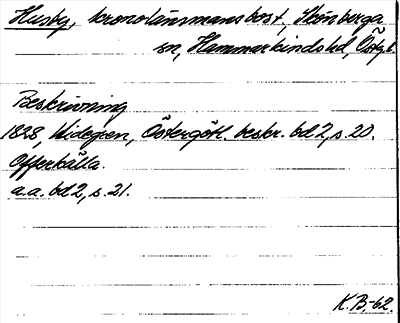 Husby, kronolänsmansbost, Skönberga
sn, Hammarkinds hd, Östg.l.
Beskrivning
1828, Widegren, Östergötl. beskr. bd 2, s. 20.
Offerkälla.
a.a. bd 2, s. 21.
K.B-62.